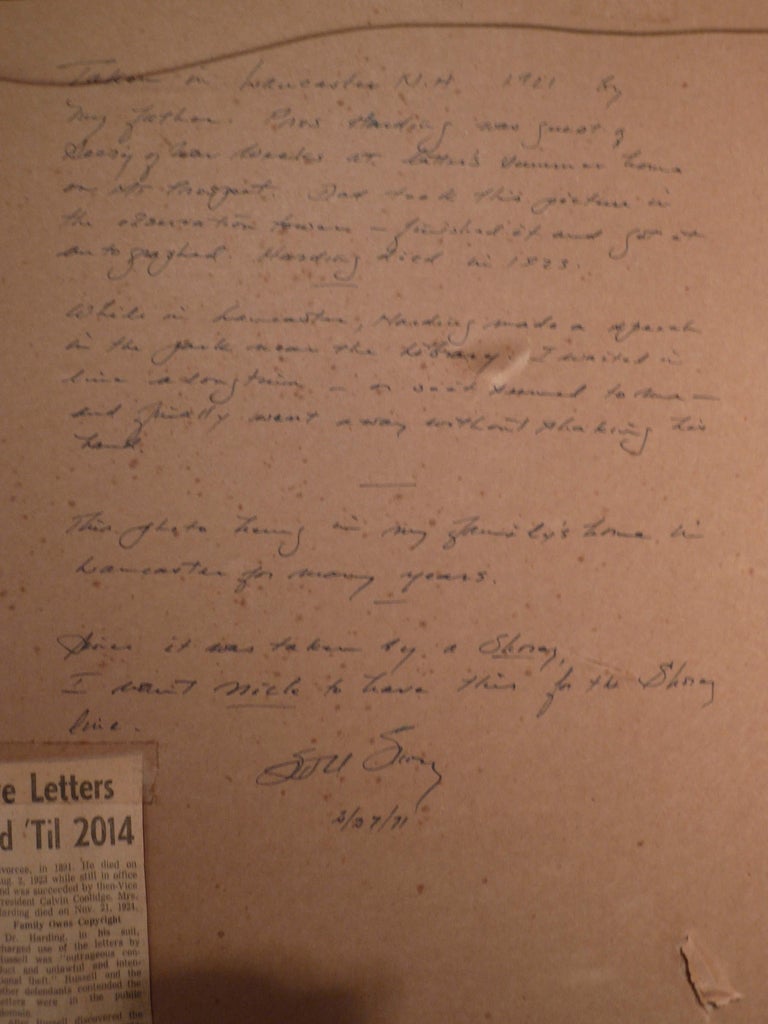 Taken in Lancaster N.H. 1921 by
my father. Pres Harding was guest of
Secry of War Weeks at latter's summer home
on Mt Prospect. Dad took this picture in
the observation tower — finished it and got it
autographed. Harding died in 1923.
While in Lancaster, Harding made a speech
in the park near the library. I waited in
line a long time — or so it seemed to me —
and finally went away without shaking his
hand.
This photo hung in my family's home in
Lancaster for many years.
Since it was taken by a Shorey,
I want Nick to have this for the Shorey
line.
2/27/71
e Letters
d 'Til 2014
vorcee, in 1891. He died on
ug. 2, 1923 while still in office
nd was succeeded by then-Vice
resident Calvin Coolidge. Mrs.
arding died on Nov. 21, 1924.
Family Owns Copyright
Dr. Harding, in his suit,
harged use of the letters by
Russell was "outrageous con-
duct and unlawful and inten-
ional theft." Russell and the
ther defendants contended the
etters were in the public
domain.
After Russell discovered the